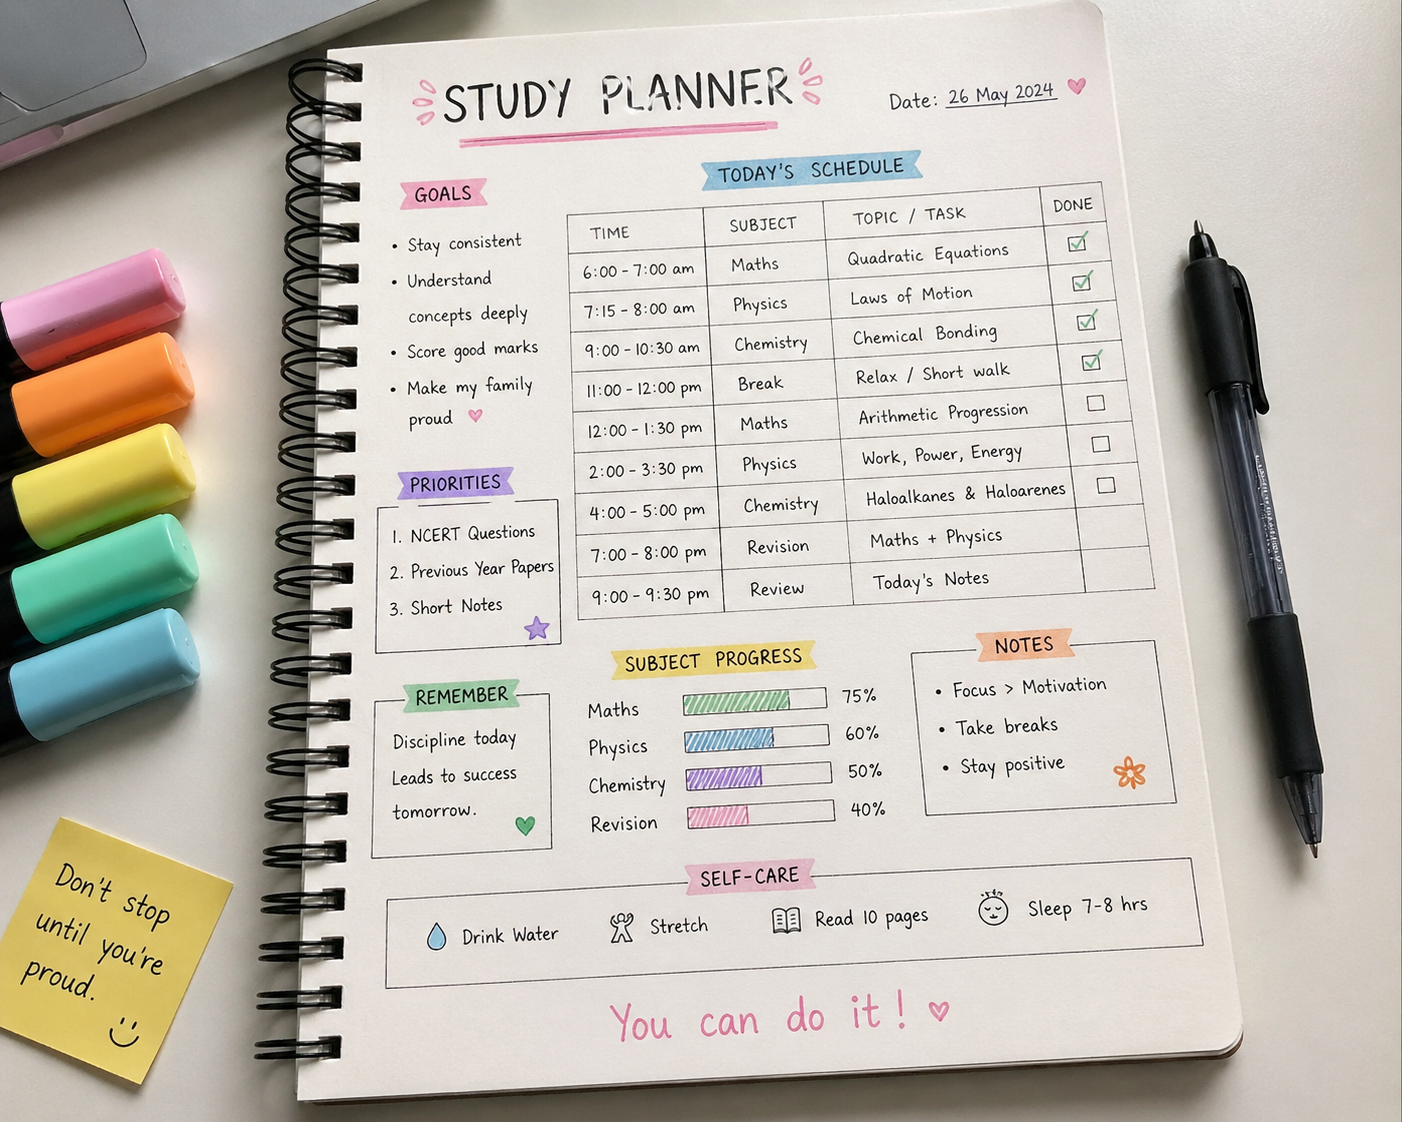 STUDY PLANNER
Date: 26 May 2024
GOALS
• Stay consistent
• Understand
concepts deeply
• Score good marks
• Make my family
proud
PRIORITIES
1. NCERT Questions
2. Previous Year Papers
3. Short Notes
REMEMBER
Discipline today
Leads to success
tomorrow.
TODAY'S SCHEDULE
TIME SUBJECT TOPIC / TASK DONE
6:00 - 7:00 am Maths Quadratic Equations
7:15 - 8:00 am Physics Laws of Motion
9:00 - 10:30 am Chemistry Chemical Bonding
11:00 - 12:00 pm Break Relax / Short walk
12:00 - 1:30 pm Maths Arithmetic Progression
2:00 - 3:30 pm Physics Work, Power, Energy
4:00 - 5:00 pm Chemistry Haloalkanes & Haloarenes
7:00 - 8:00 pm Revision Maths + Physics
9:00 - 9:30 pm Review Today's Notes
SUBJECT PROGRESS
Maths 75%
Physics 60%
Chemistry 50%
Revision 40%
NOTES
• Focus > Motivation
• Take breaks
• Stay positive
SELF-CARE
Drink Water Stretch Read 10 pages Sleep 7-8 hrs
You can do it!
Don't stop
until you're
proud.